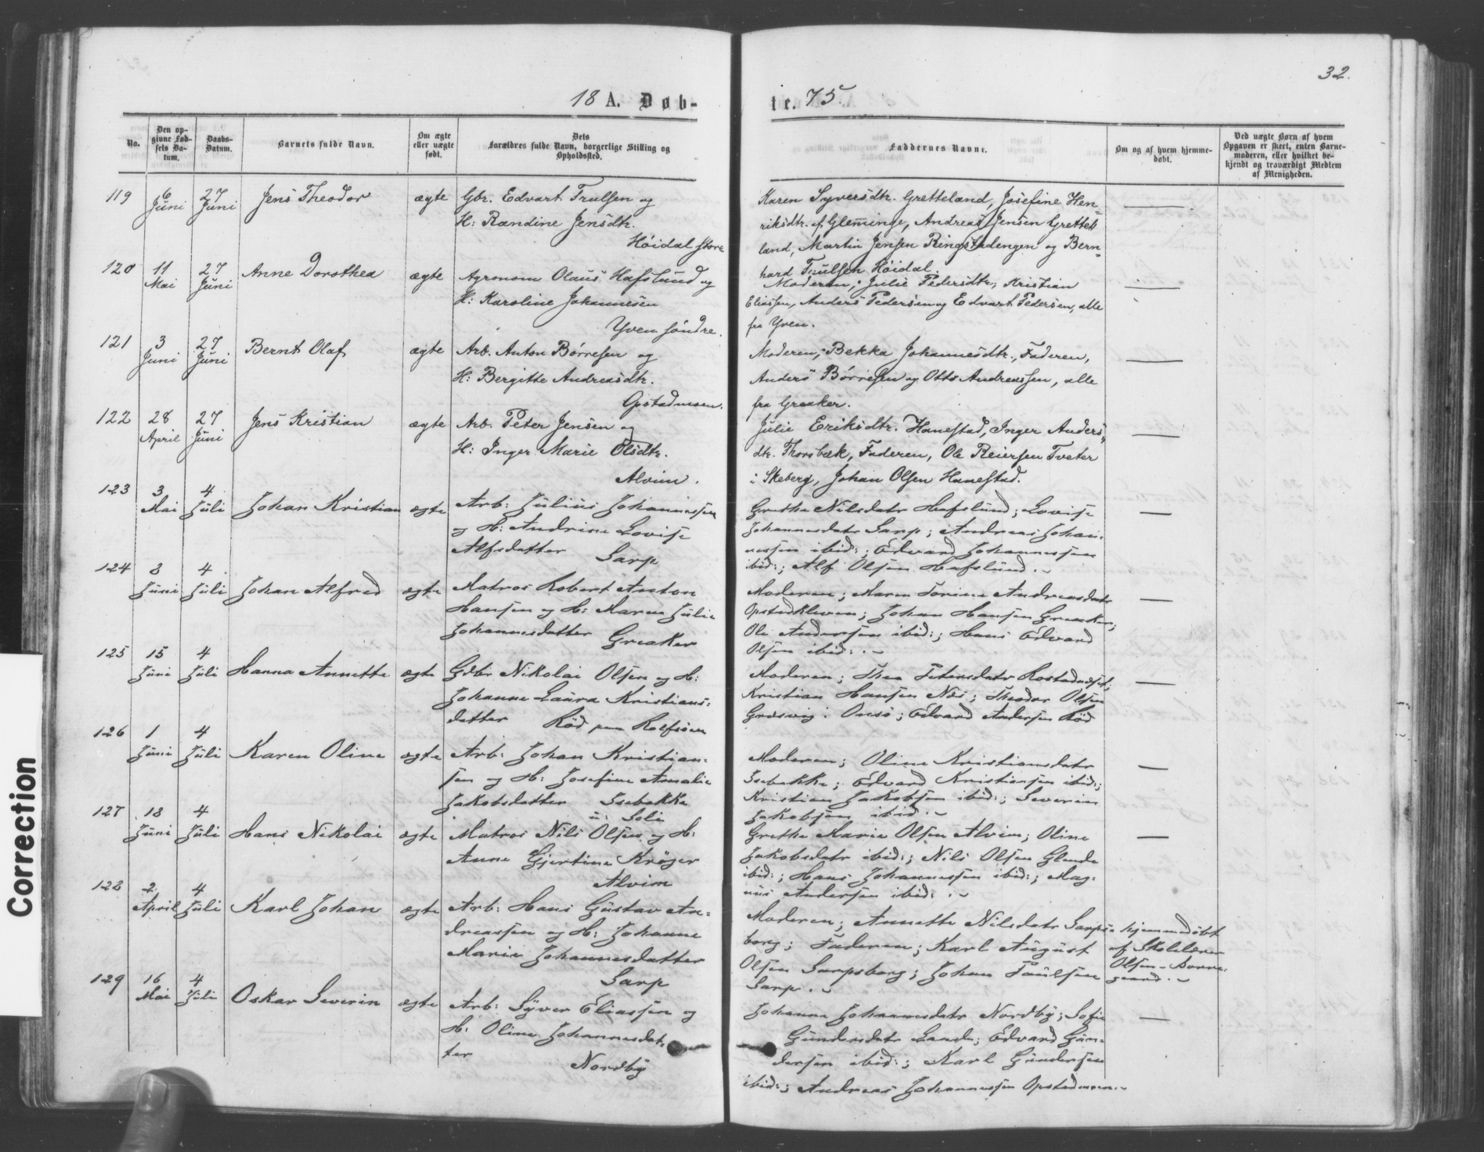 32.
18 A. Døb-
te. 75.
No.
Den op-
givne Fød-
sels Da-
tum.
Daabs-
Datum.
Barnets fulde Navn.
Om ægte
eller uægte
født.
Dets
Forældres fulde Navn, borgerlige Stilling og
Opholdssted.
Faddernes Navne.
Om og af hvem hjemme-
døbt.
Ved uægte Børn af hvem
Opgaven er skeet, enten Barne-
moderen, eller hvilket be-
kjendt og troværdigt Medlem
af Menigheden.
119 6 Juni 27 Juni Jens Theodor ægte Gbr. Edvart Trulsen og
H: Randine Jensdtr.
Høidal store
Karen Syversdtr. Gretteland, Josefine Hen-
riksdtr. af Glemminge, Andreas Jensen Grette-
land, Martin Jensen Ringstadengen og Bern-
hard Trulsen Høidal.
120 11 Mai 27 Juni Anne Dorothea ægte Olaus Hafslund og
H: Karoline Johannesen
Yven søndre.
Moderen, Julie Pedersdtr, Kristian
Eliassen, Anders Pedersen og Edvart Pedersen, alle
fra Yven.
121 3 Juni 27 Juni Bernt Olaf ægte Arb. Anton Børresen og
H: Bergitte Andreasdtr.
Opstadmoen.
Moderen, Bekka Johannesdtr., Faderen,
Anders Børresen og Otto Andreassen, alle
fra Greaker.
122 28 April 27 Juni Jens Kristian ægte Arb. Peter Jensen og
H: Inger Marie Olsdtr.
Alvim.
Julie Eriksdtr. Hanestad, Inger Anders-
dtr. Thorsbæk, Faderen, Ole Reiersen Tveter
i Skeberg, Johan Olsen Hanestad.
123 3 Mai 4 Juli Johan Kristian ægte Arb: Julius Johannessen
og H: Andrine Lovise
Alfsdatter Sarp
Grethe Nilsdatr Hafslund; Lovise
Johannesdatr Sarp; Andreas Johan-
nessen ibid:; Edvard Johannessen
ibid:; Alf Olsen Hafslund.
124 3 Juni 4 Juli Johan Alfred ægte Matros Robert Anton
Hansen og H: Maren Julie
Johannesdatter Greaker
Moderen; Maren Torine Andreasdatr
Opstadkleven; Johan Hansen Greaker;
Ole Andersen ibid:; Hans Edvard
Olsen ibid:.
125 15 Juni 4 Juli Hanna Annette ægte Gdbr Nikolai Olsen og H:
Johanne Laura Kristians-
datter Rød paa Rolfsøen
Moderen; Thea Petersdatr
Kristian Hansen Næs; Theodor Olsen
Græsvig i Onsø; Edvard Andersen Rød
126 1 Juni 4 Juli Karen Oline ægte Arb: Johan Kristian-
sen og H: Josefine Amalie
Jakobsdatter Isebakke
u: Solie
Moderen; Oline Kristiansdatr
Isebakke; Edvard Kristiansen ibid:;
Kristian Jakobsen ibid:; Severin
Jakobsen ibid:
127 18 Juni 4 Juli Hans Nikolai ægte Matros Nils Olsen og H:
Anne Gjertine Krøger
Alvim
Grethe Marie Olsen Alvim; Oline
Jakobsdatr ibid:; Nils Olsen Glende
ibid:; Hans Johannessen ibid:; Mag-
nus Andersen ibid:.
128 2 April 4 Juli Karl Johan ægte Arb: Hans Gustav An-
dreassen og H: Johanne
Marie Johannesdatter
Sarp
Moderen; Annette Nilsdatr Sarps-
borg; Faderen; Karl August
Olsen Sarpsborg; Johan Paulsen
Sarp.
hjemmedøbt
af Skolelærer
Olsen - Borre-
gaard.
129 16 Mai 4 Juli Oskar Severin ægte Arb: Syver Eliassen og
H: Oline Johannesdat-
ter
Nordby
Johanne Johannesdatr Nordby; Sofie
Gundersdatr Lande; Edvard Gun-
dersen ibid:; Karl Gundersen
ibid:; Andreas Johannessen Opstadmoen.
Correction